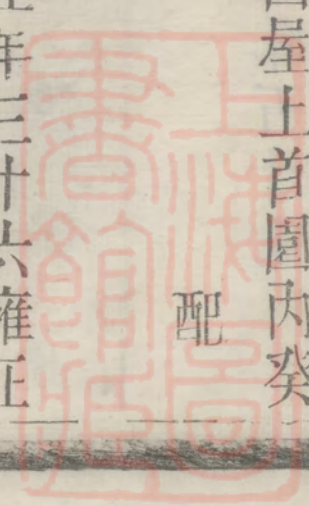 屋上首園内癸
配
年三十六雍正
上海圖
書館藏